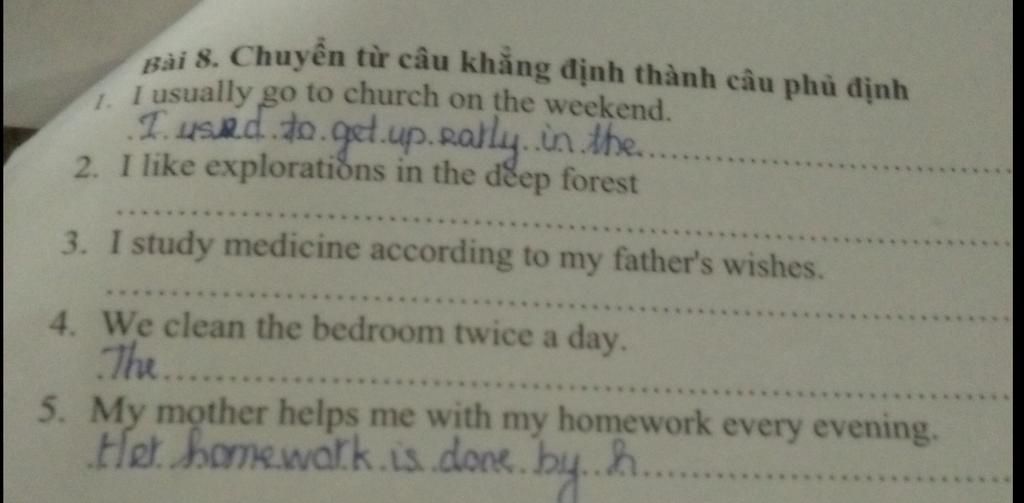 Bài 8. Chuyển từ câu khẳng định thành câu phủ định
1. I usually go to church on the weekend.
I used to get up early in the
2. I like explorations in the deep forest
3. I study medicine according to my father's wishes.
4. We clean the bedroom twice a day.
The
5. My mother helps me with my homework every evening.
Her homework is done by h